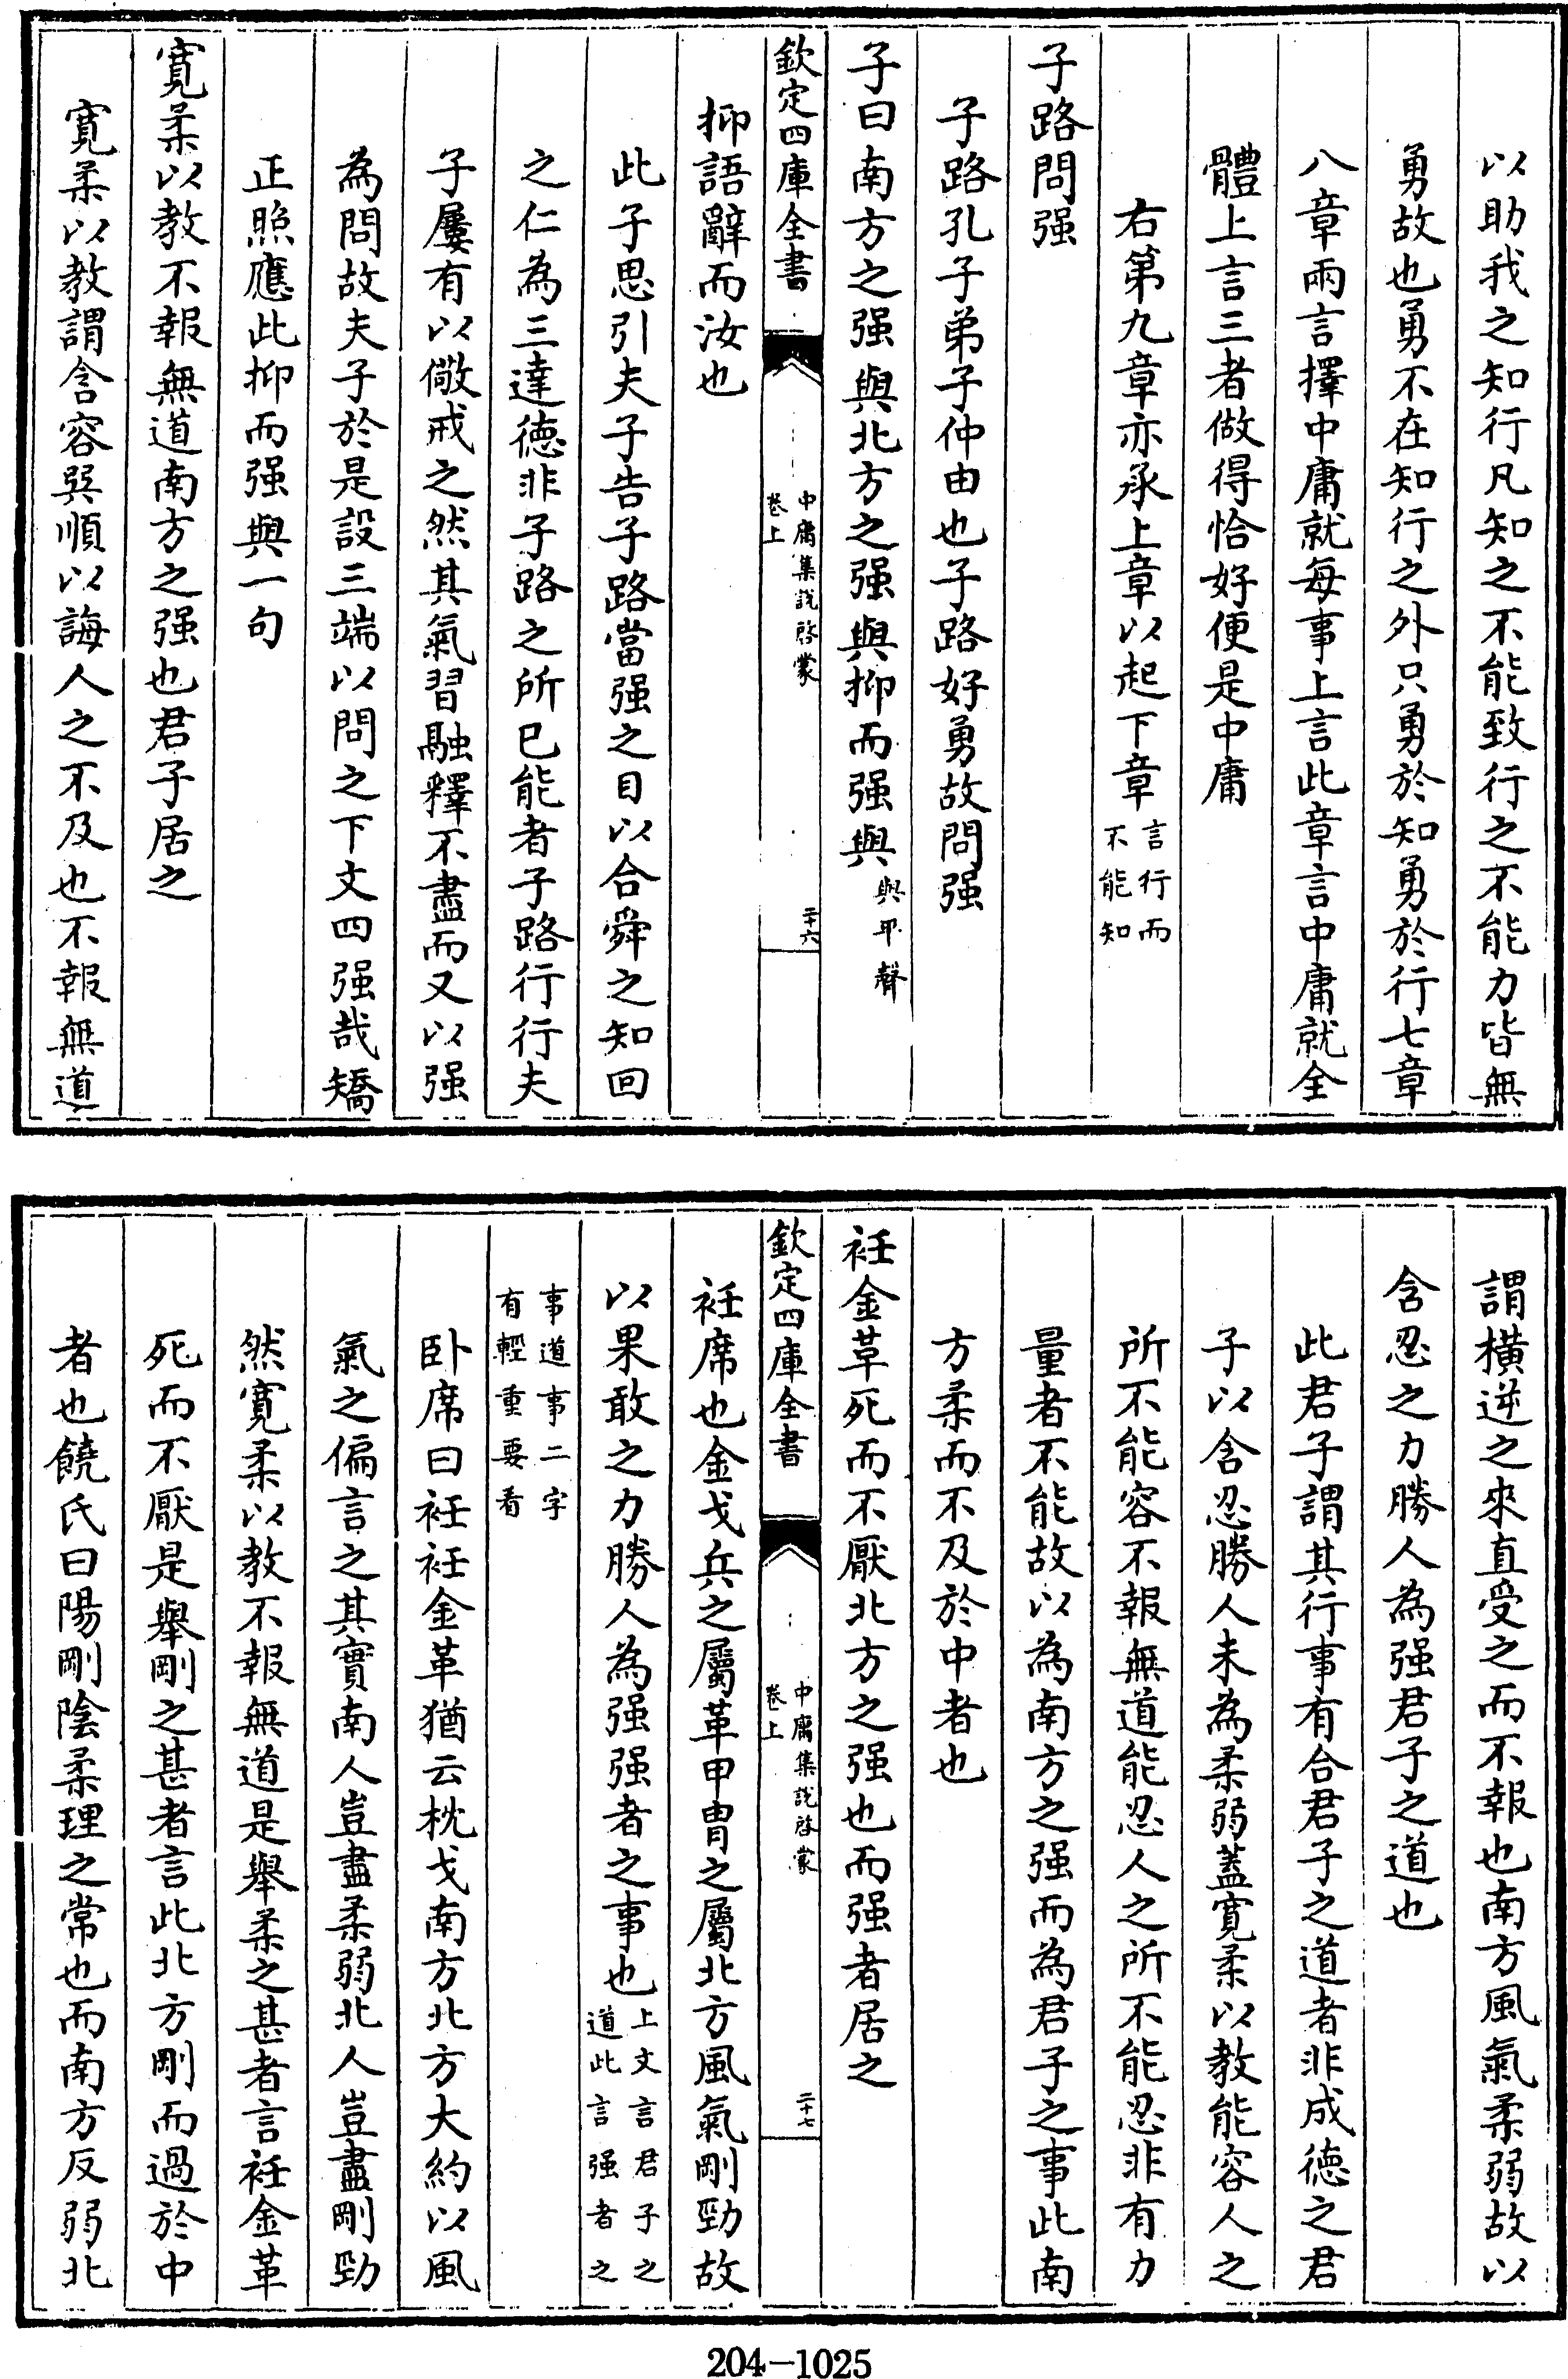 以助我之知行凡知之不能致行之不能力皆無
勇故也勇不在知行之外只勇於知勇於行七章
八章兩言擇中庸就每事上言此章言中庸就全
體上言三者做得恰好便是中庸
右第九章亦承上章以起下章言行而不能知
子路問强
子路孔子弟子仲由也子路好勇故問强
子曰南方之强與北方之强與抑而强與與平聲
欽定四庫全書 中庸集說啓蒙 卷上 二十六
抑語辭而汝也
此子思引夫子告子路當强之目以合舜之知回
之仁為三達德非子路之所已能者子路行行夫
子屢有以儆戒之然其氣習融釋不盡而又以强
為問故夫子於是設三端以問之下文四强哉矯
正照應此抑而强與一句
寛柔以教不報無道南方之强也君子居之
寛柔以教謂含容巽順以誨人之不及也不報無道
謂橫逆之來直受之而不報也南方風氣柔弱故以
含忍之力勝人為强君子之道也
此君子謂其行事有合君子之道者非成德之君
子以含忍勝人未為柔弱蓋寛柔以教能容人之
所不能容不報無道能忍人之所不能忍非有力
量者不能故以為南方之强而為君子之事此南
方柔而不及於中者也
衽金革死而不厭北方之强也而强者居之
欽定四庫全書 中庸集說啓蒙 卷上 二十七
衽席也金戈兵之屬革甲冑之屬北方風氣剛勁故
以果敢之力勝人為强强者之事也上文言君子之道此言强者之
事道事二字有輕重要看
卧席曰衽衽金革猶云枕戈南方北方大約以風
氣之偏言之其實南人豈盡柔弱北人豈盡剛勁
然寛柔以教不報無道是舉柔之甚者言衽金革
死而不厭是舉剛之甚者言此北方剛而過於中
者也饒氏曰陽剛陰柔理之常也而南方反弱北
204-1025